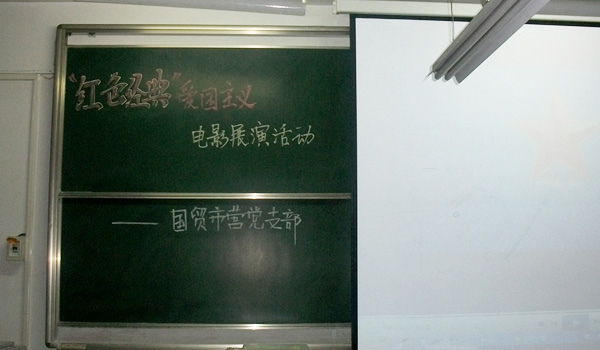 “红色经典”爱国主义
电影展演活动
——国贸市营党支部